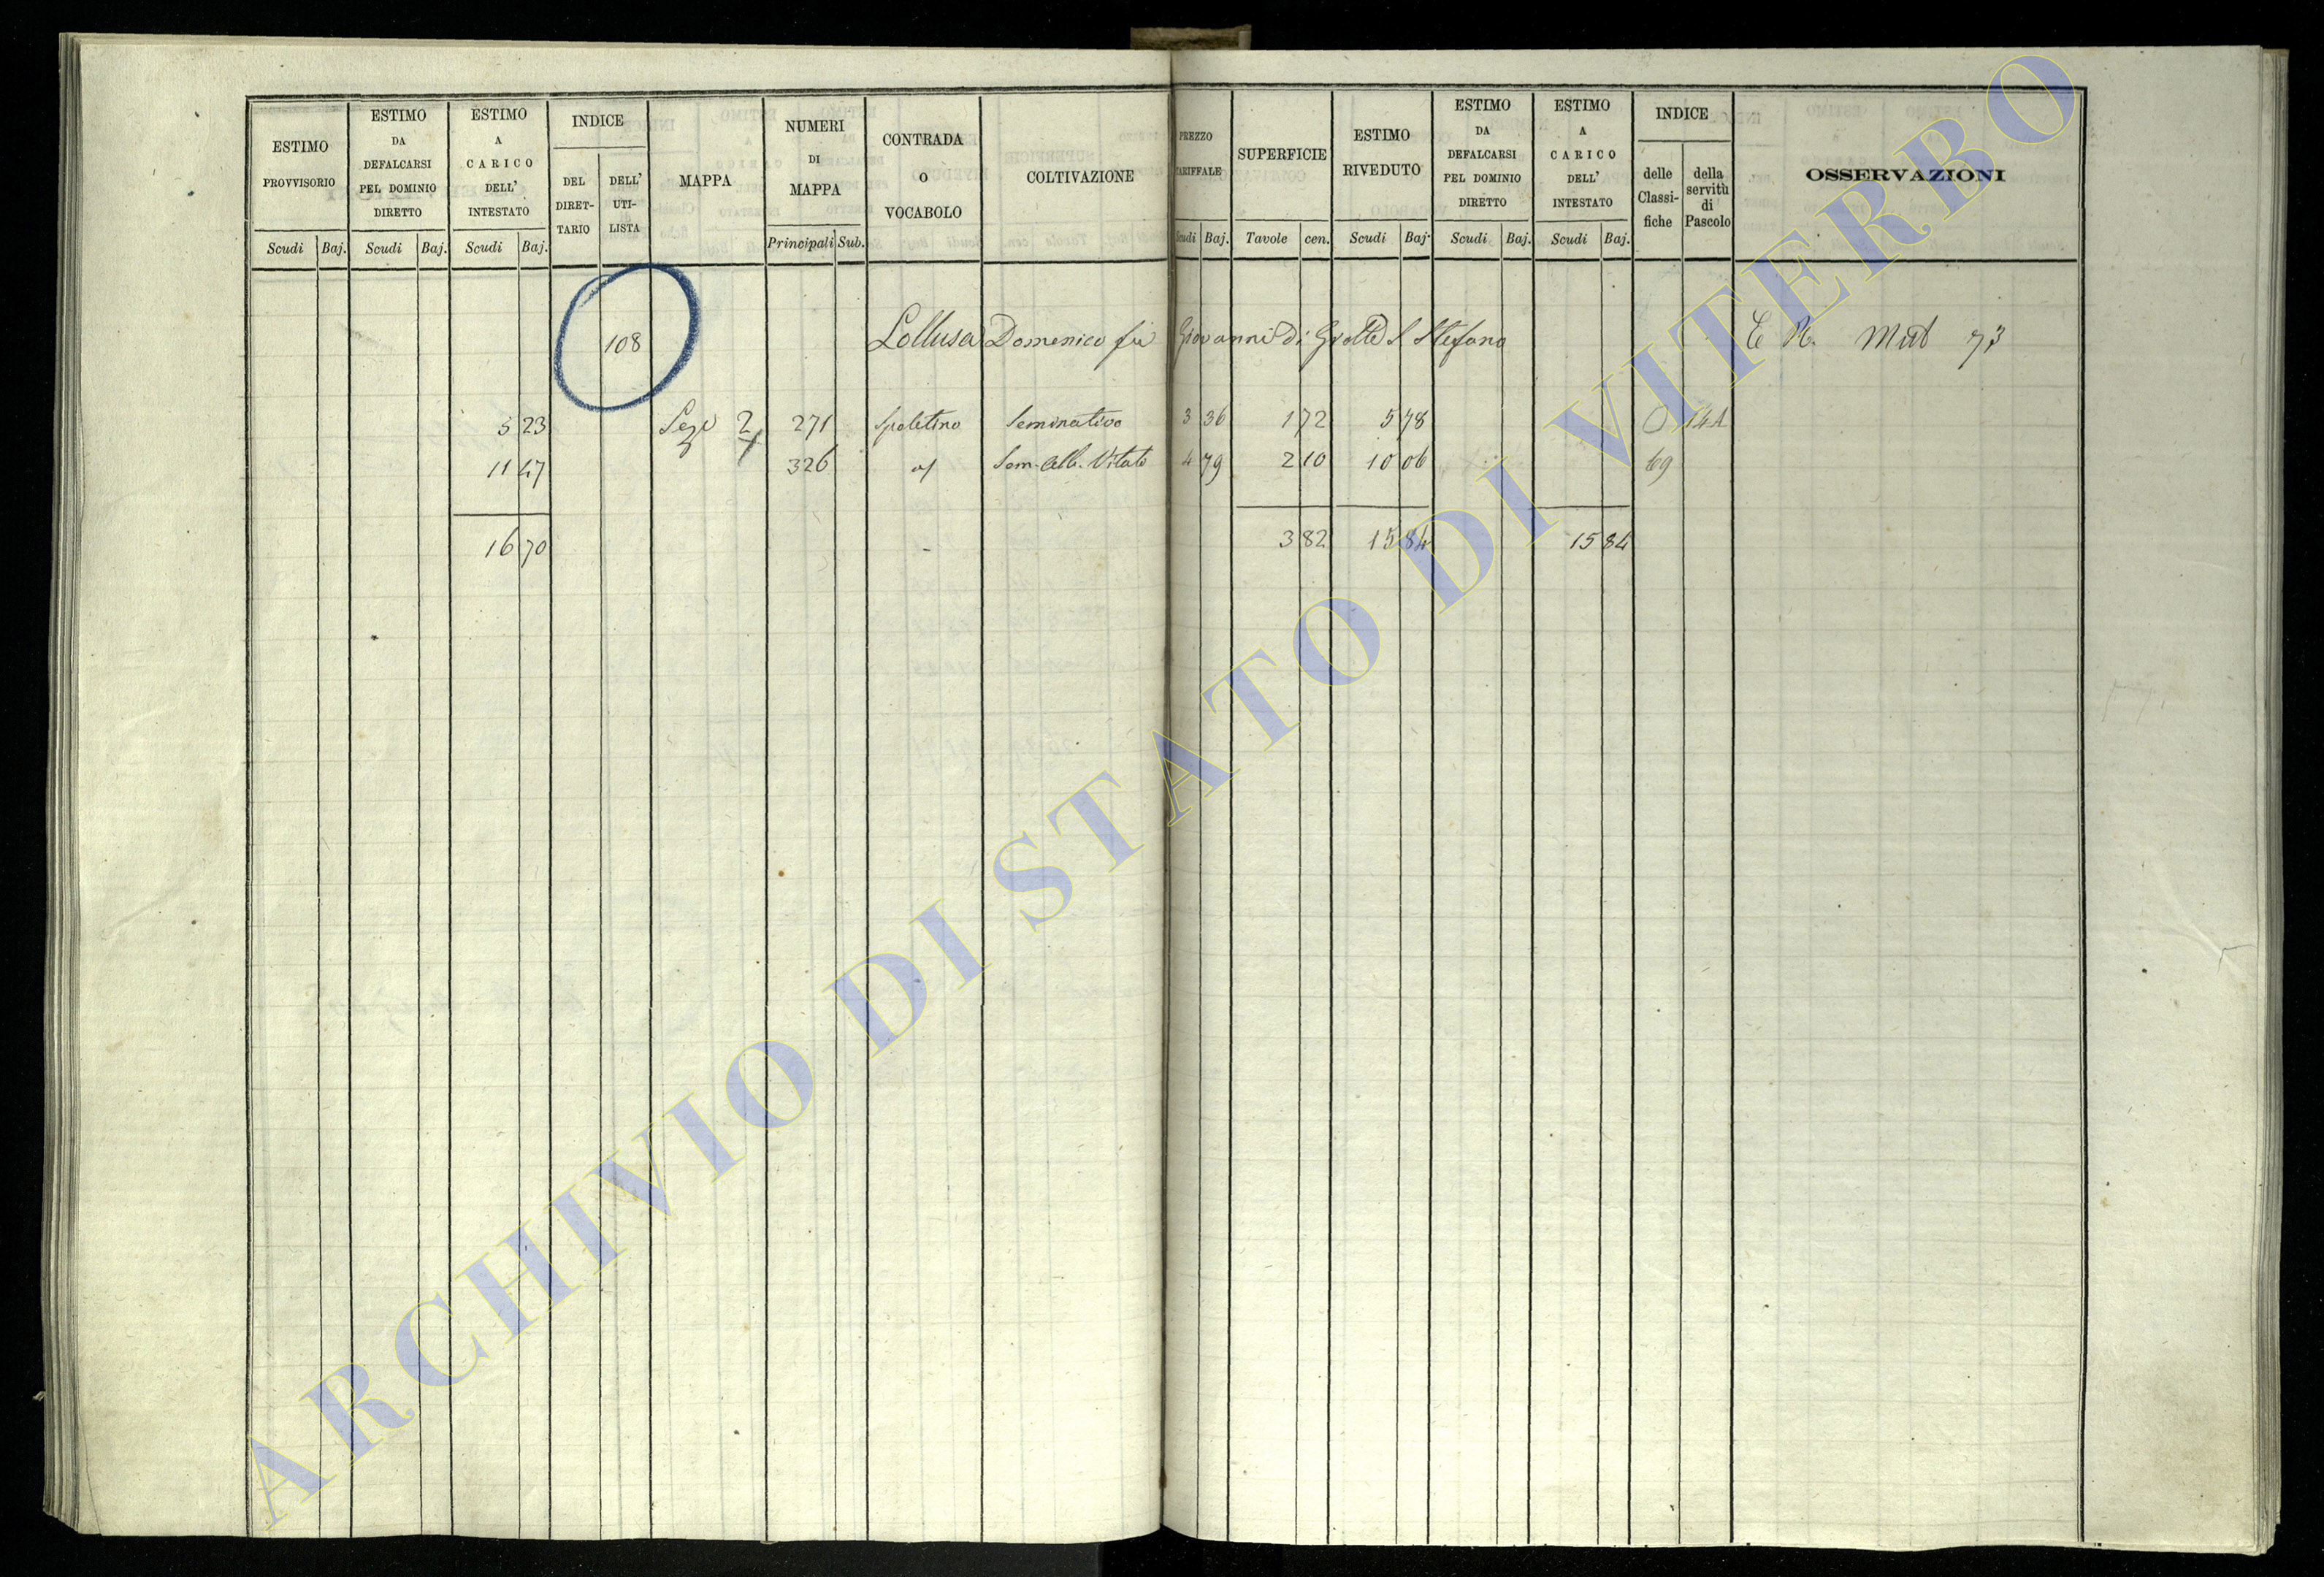 ESTIMO PROVVISORIO
ESTIMO DA DEFALCARSI PEL DOMINIO DIRETTO
ESTIMO A CARICO DELL' INTESTATO
INDICE
DEL DIRET- TARIO
DELL' UTI- LISTA
MAPPA
NUMERI DI MAPPA
CONTRADA O VOCABOLO
COLTIVAZIONE
PREZZO TARIFFALE
SUPERFICIE
ESTIMO RIVEDUTO
ESTIMO DA DEFALCARSI PEL DOMINIO DIRETTO
ESTIMO A CARICO DELL' INTESTATO
INDICE
delle Classi- fiche
della servitù di Pascolo
OSSERVAZIONI
Scudi Baj. Scudi Baj. Scudi Baj. Principali Sub. Scudi Baj. Tavole cen. Scudi Baj. Scudi Baj. Scudi Baj.
108 Domenico fu Giovanni di Grotte S Stefano E R. Mut 73
5 23 Sez 2 271 Spoletino Seminativo 3 36 1 72 5 78 144
11 47 326 Sem. Alb. Vitato 4 79 2 10 10 06 69
16 70 3 82 15 84 15 84
ARCHIVIO DI STATO DI VITERBO